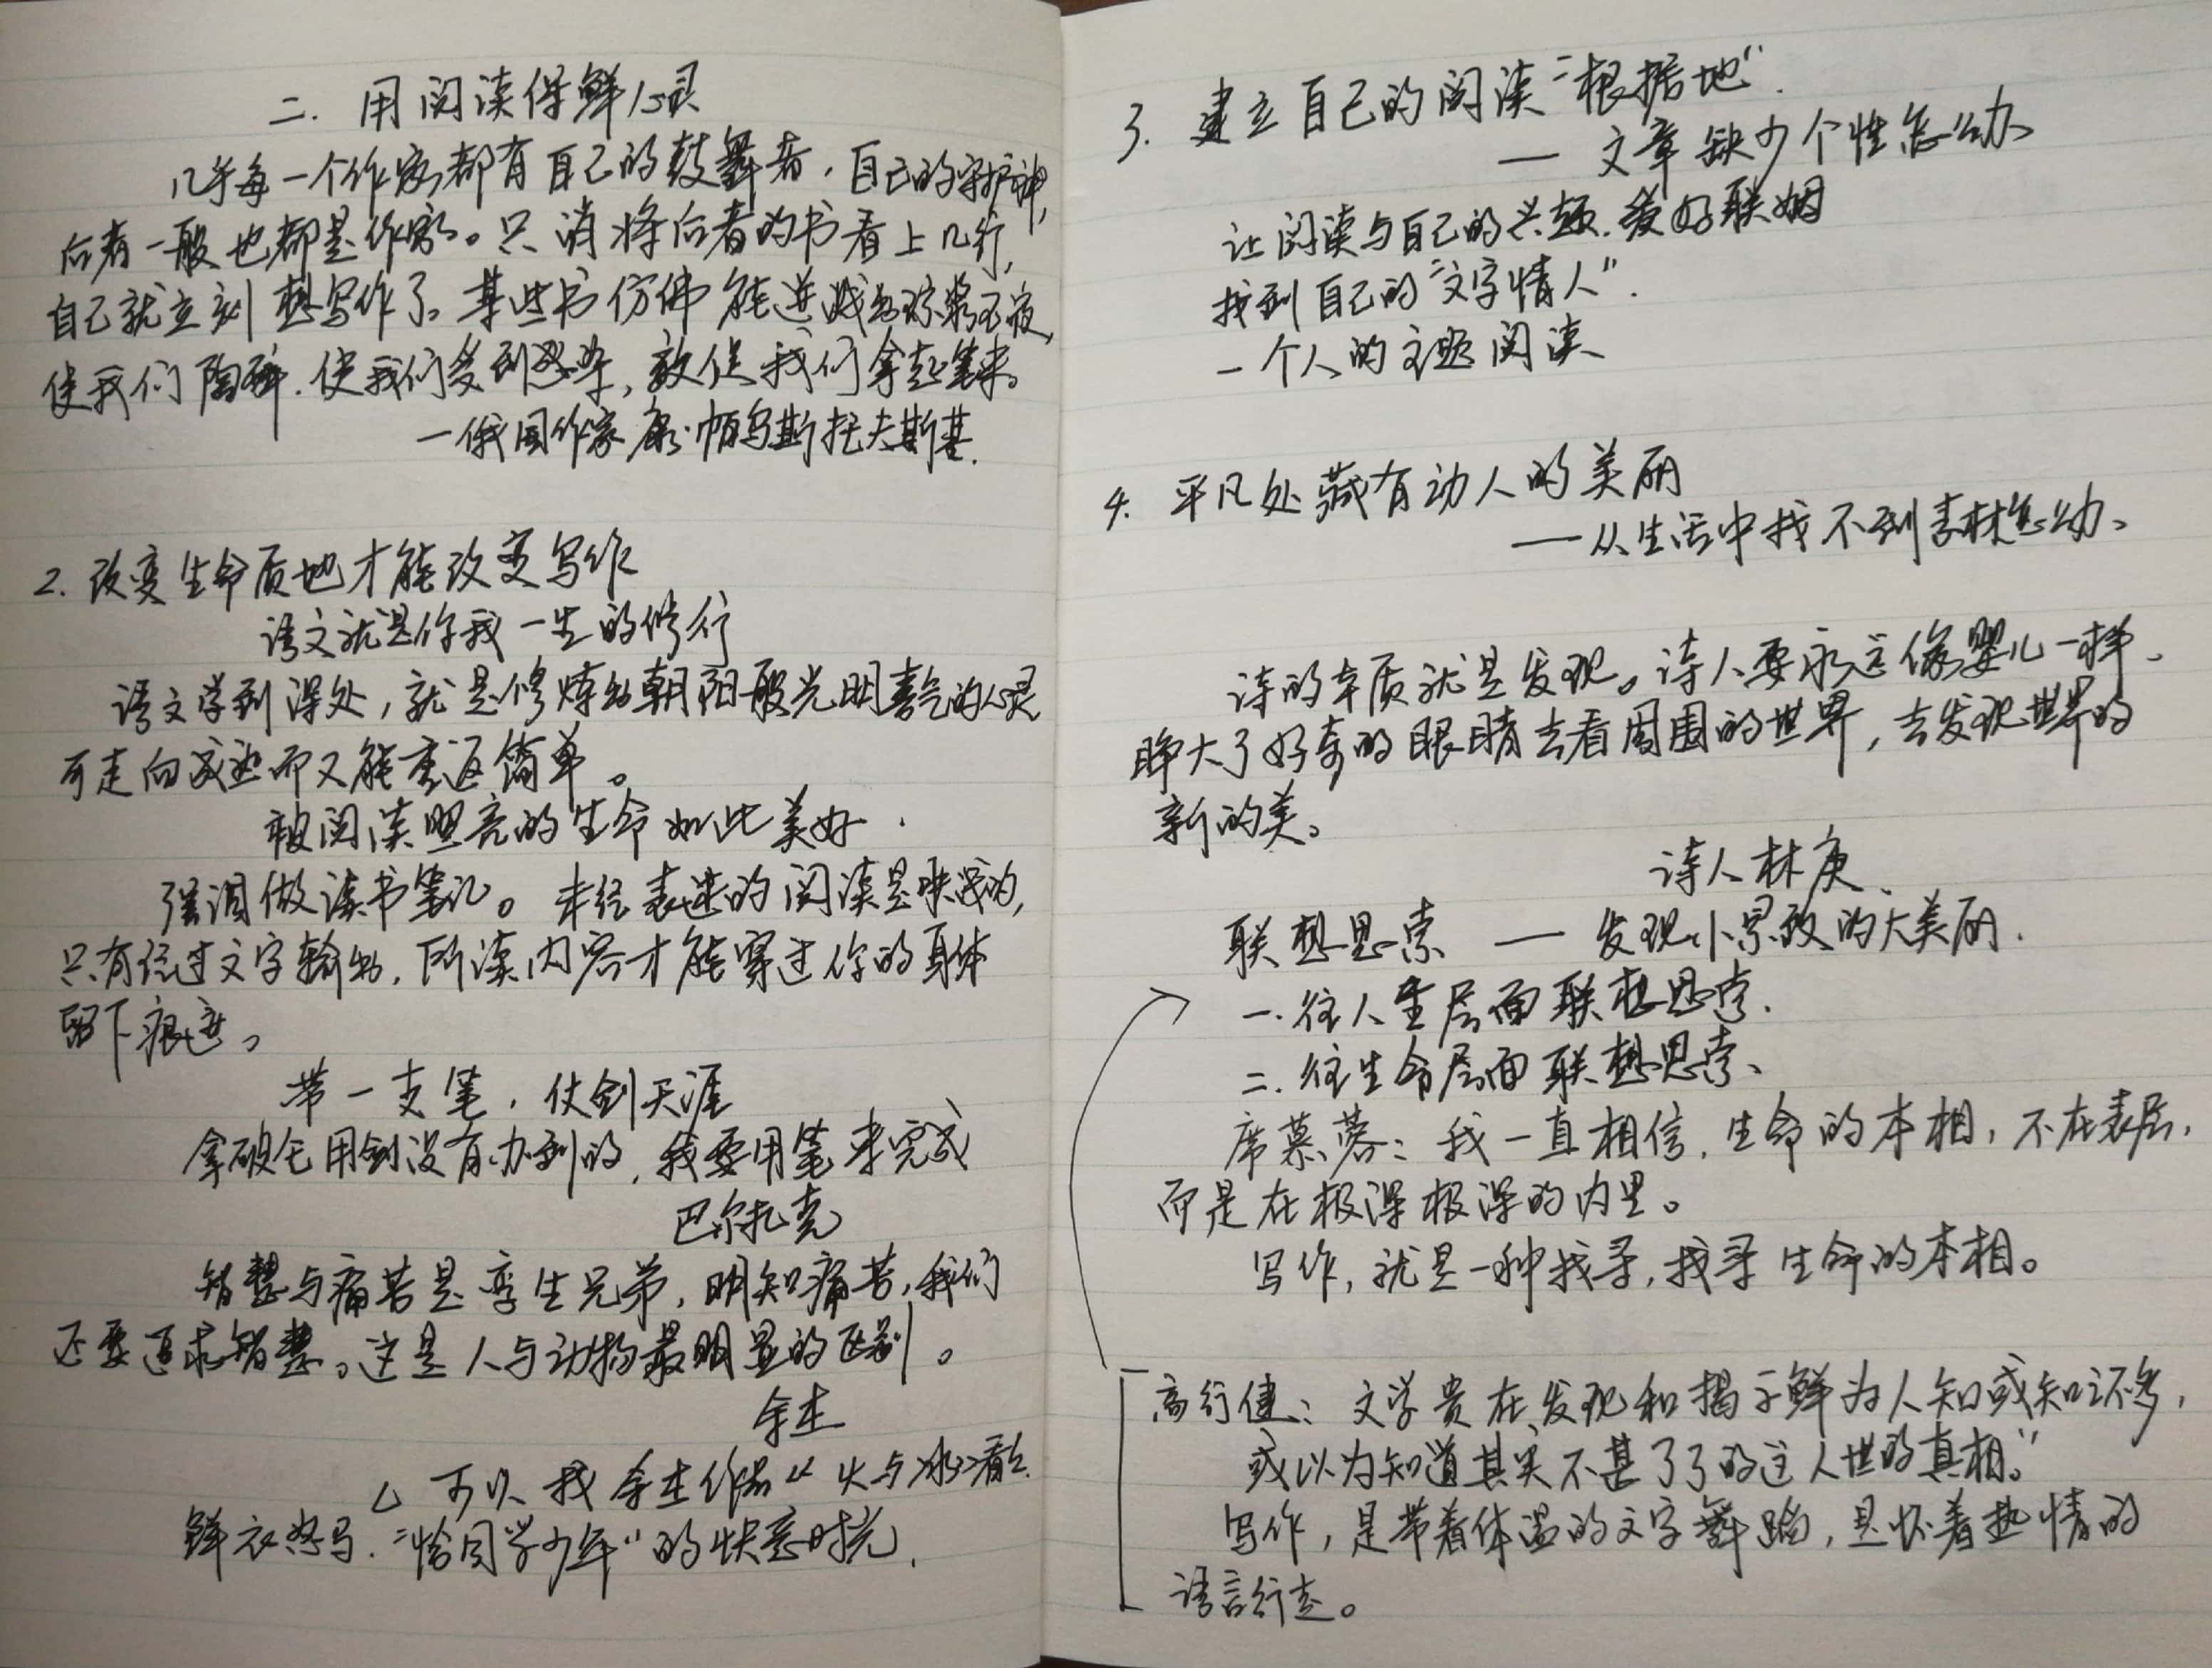 二. 用阅读保鲜心灵
几乎每一个作家都有自己的鼓舞者,自己的守护神,
后者一般也都是作家。只消将后者的书看上几行,
自己就立刻想写作了。某些书仿佛能迸溅出琼浆玉液,
使我们陶醉.使我们受到感染,敦促我们拿起笔来。
—俄国作家康·帕乌斯托夫斯基.
2. 改变生命质地才能改变写作
语文就是你我一生的修行
语文学到深处,就是修炼出朝阳般光明喜气的心灵
可走向成熟而又能重返简单。
被阅读照亮的生命如此美好.
强调做读书笔记。未经表述的阅读是残缺的,
只有经过文字输出,所读内容才能穿过你的身体
留下痕迹。
带一支笔,仗剑天涯
拿破仑用剑没有办到的,我要用笔来完成
巴尔扎克
智慧与痛苦是孪生兄弟,明知痛苦,我们
还要追求智慧。这是人与动物最明显的区别。
余杰
△ 可以找余杰作品《火与冰》看看.
鲜衣怒马.“恰同学少年”的快意时光.
3. 建立自己的阅读“根据地”.
— 文章缺少个性怎么办
让阅读与自己的兴趣.爱好联姻
找到自己的“文字情人”.
一个人的主题阅读
4. 平凡处藏有动人的美丽
—从生活中找不到素材怎么办、
诗的本质就是发现。诗人要永远像婴儿一样、
睁大了好奇的眼睛去看周围的世界,去发现世界的
新的美。
诗人林庚、
联想思索 — 发现小景致的大美丽.
一.往人生层面联想思索.
二.往生命层面联想思索、
席慕蓉:我一直相信,生命的本相,不在表层,
而是在极深极深的内里。
写作,就是一种找寻,找寻生命的本相。
高行健:文学贵在发现和揭示鲜为人知或知之不多,
或以为知道其实不甚了了的这人世的真相。”
写作,是带着体温的文字舞蹈,是怀着热情的
语言行走。